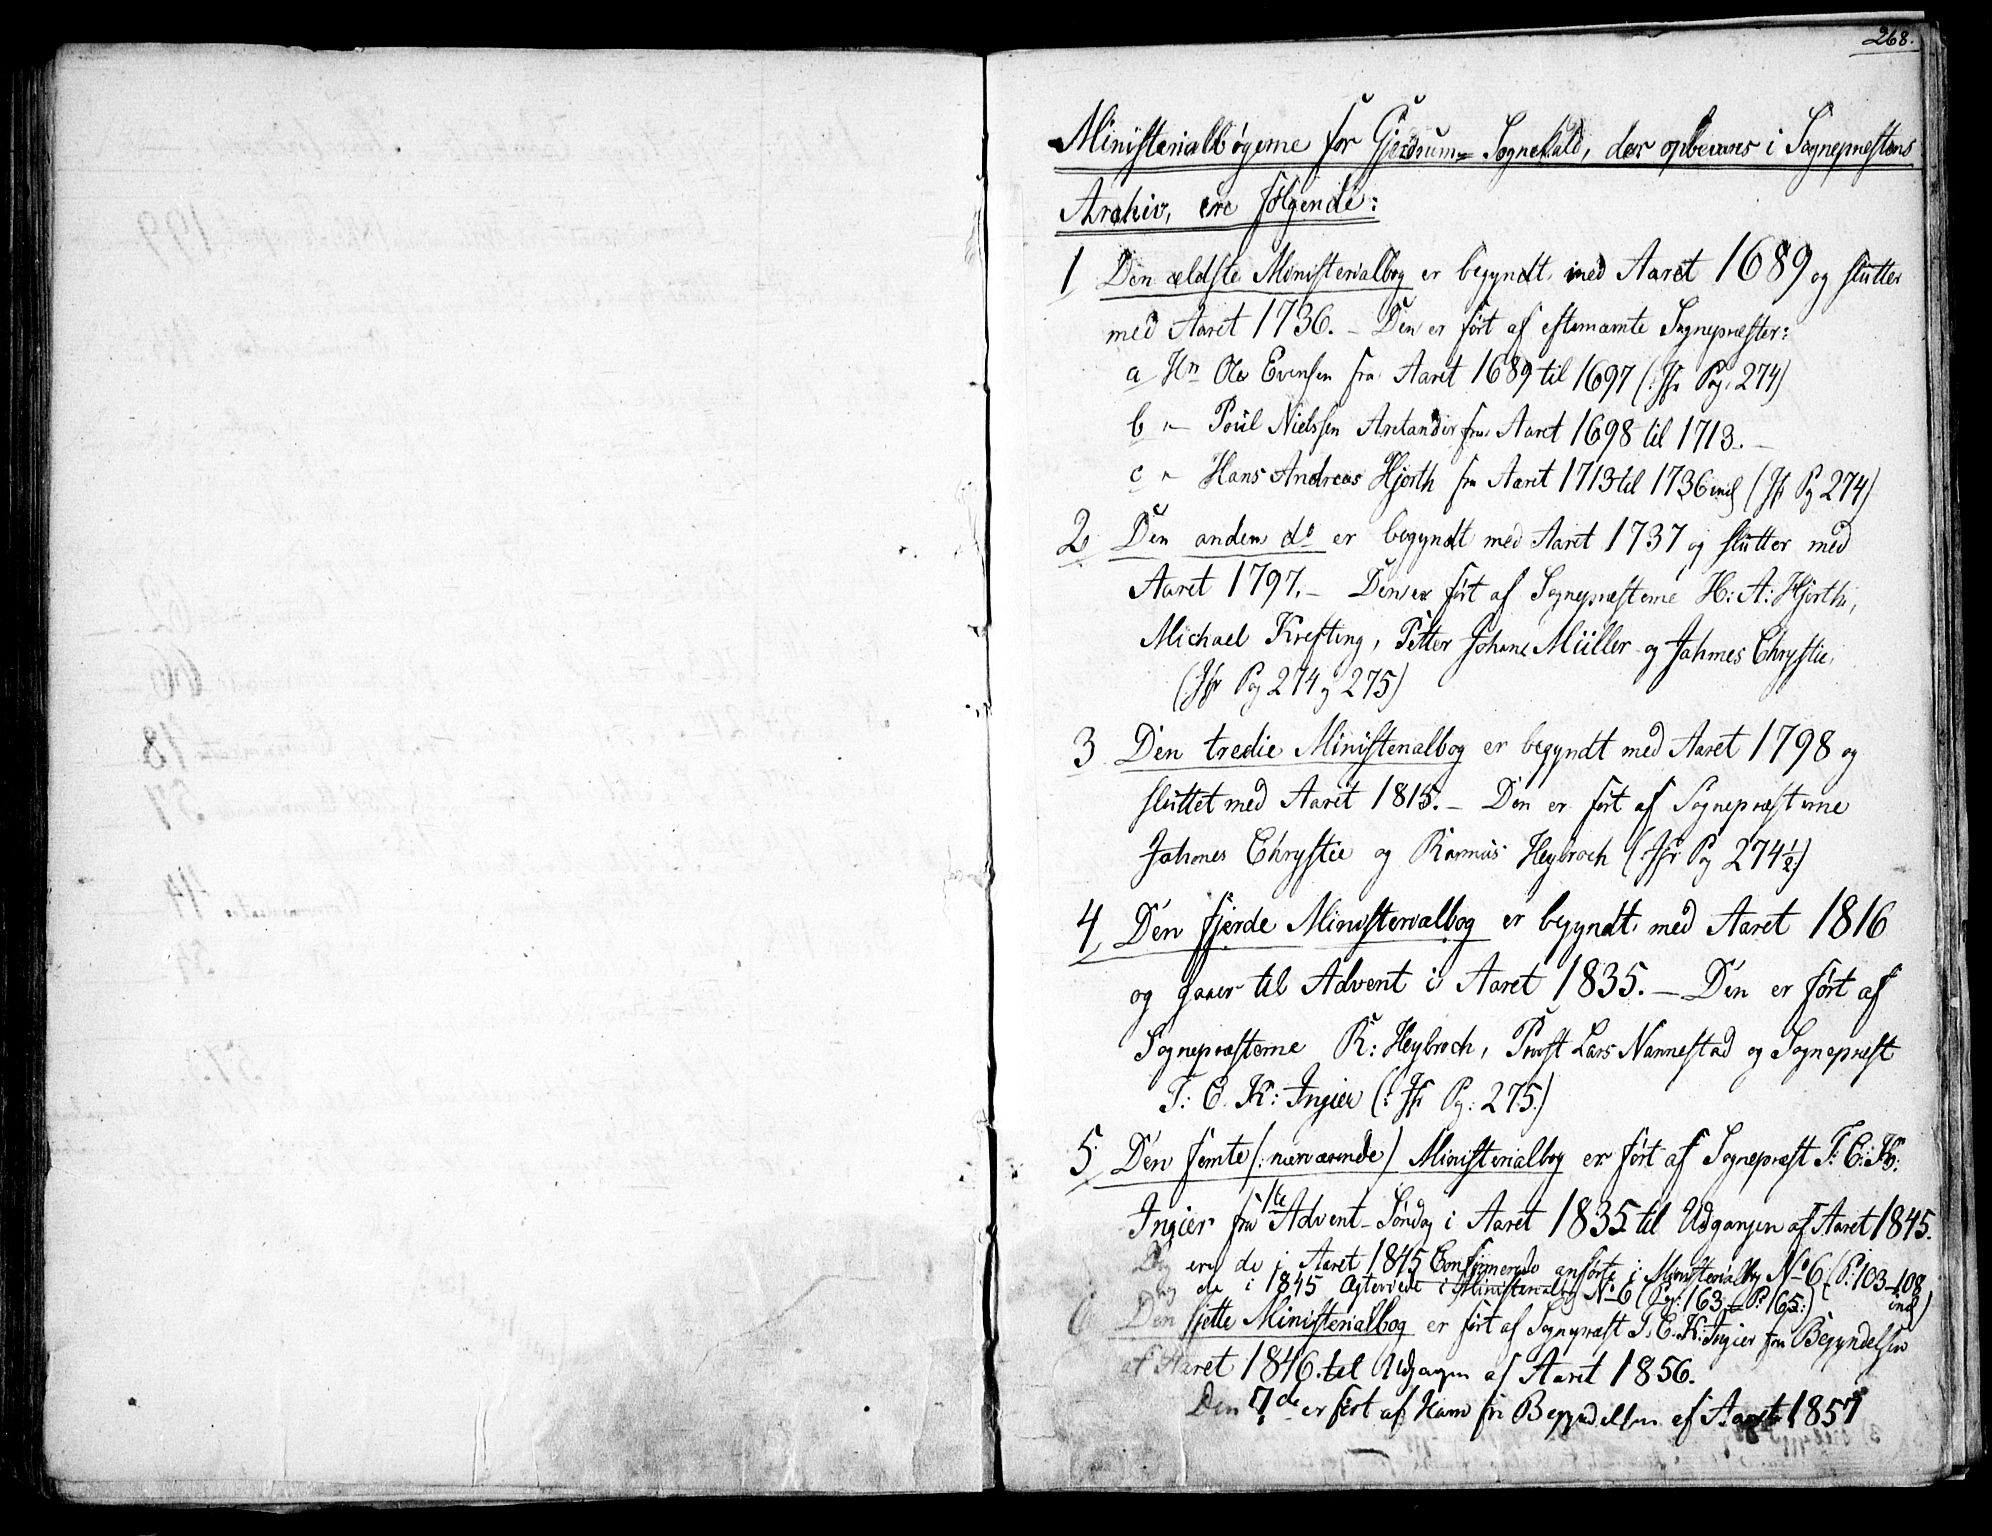 268.
Ministerialbøgerne for Gjerdrums Sognekald, der opbevares i Sognepræstens
Archiv, ere følgende:
1 Den ældste Ministerialbog er begyndt med Aaret 1689 og slutter
med Aaret 1736. – Den er ført af efternævnte Sognepræster:
a Hr Ole Evensen fra Aaret 1689 til 1697 (: Jfr Pag. 274)
b "– Poul Nielssen Aretander fra Aaret 1698 til 1713. –
c " Hans Andreas Hjorth fra Aaret 1713 til 1736 incl (Jfr Pag 274)
2 Den anden do er begyndt med Aaret 1737 og slutter med
Aaret 1797. – Den er ført af Sognepræsterne H: A: Hjorth,
Michael Krefting, Petter Johan Müller og Jahmes Chrystie.
(Jfr Pag 274 og 275)
3 Den tredie Ministerialbog er begyndt med Aaret 1798 og
sluttet med Aaret 1815. – Den er ført af Sognepræsterne
Jahmes Chrystie og Rasmus Heybroch (: Jfr Pag 274½:)
4 Den fjerde Ministerialbog er begyndt med Aaret 1816
og gaaer til Advent i Aaret 1835. – Den er ført af
Sognepræsterne R: Heybroch, Provst Lars Nannestad og Sognepræst
F: C. K: Ingier (: Jfr Pag: 275.)
5 Den femte (: nærværende) Ministerialbog er ført af Sognepræst F: C: K:
Ingier fra 1te Advent-Søndag i Aaret 1835 til Udgangen af Aaret 1845.
Dog ere de i Aaret 1845 Confirmerede anførte i Ministerialbog No 6 (P: 103–108
incl)
og de i 1845 Ægteviede i Ministerialbog No 6 (Pag: 163 – P: 165:)
6 Den sjette Ministerialbog er ført af Sognepræst F. C. K: Ingier fra Begyndelsen
af Aaret 1846 til Udgangen af Aaret 1856.
Den 7de er ført af Ham fra Begyndelsen af Aaret 1857